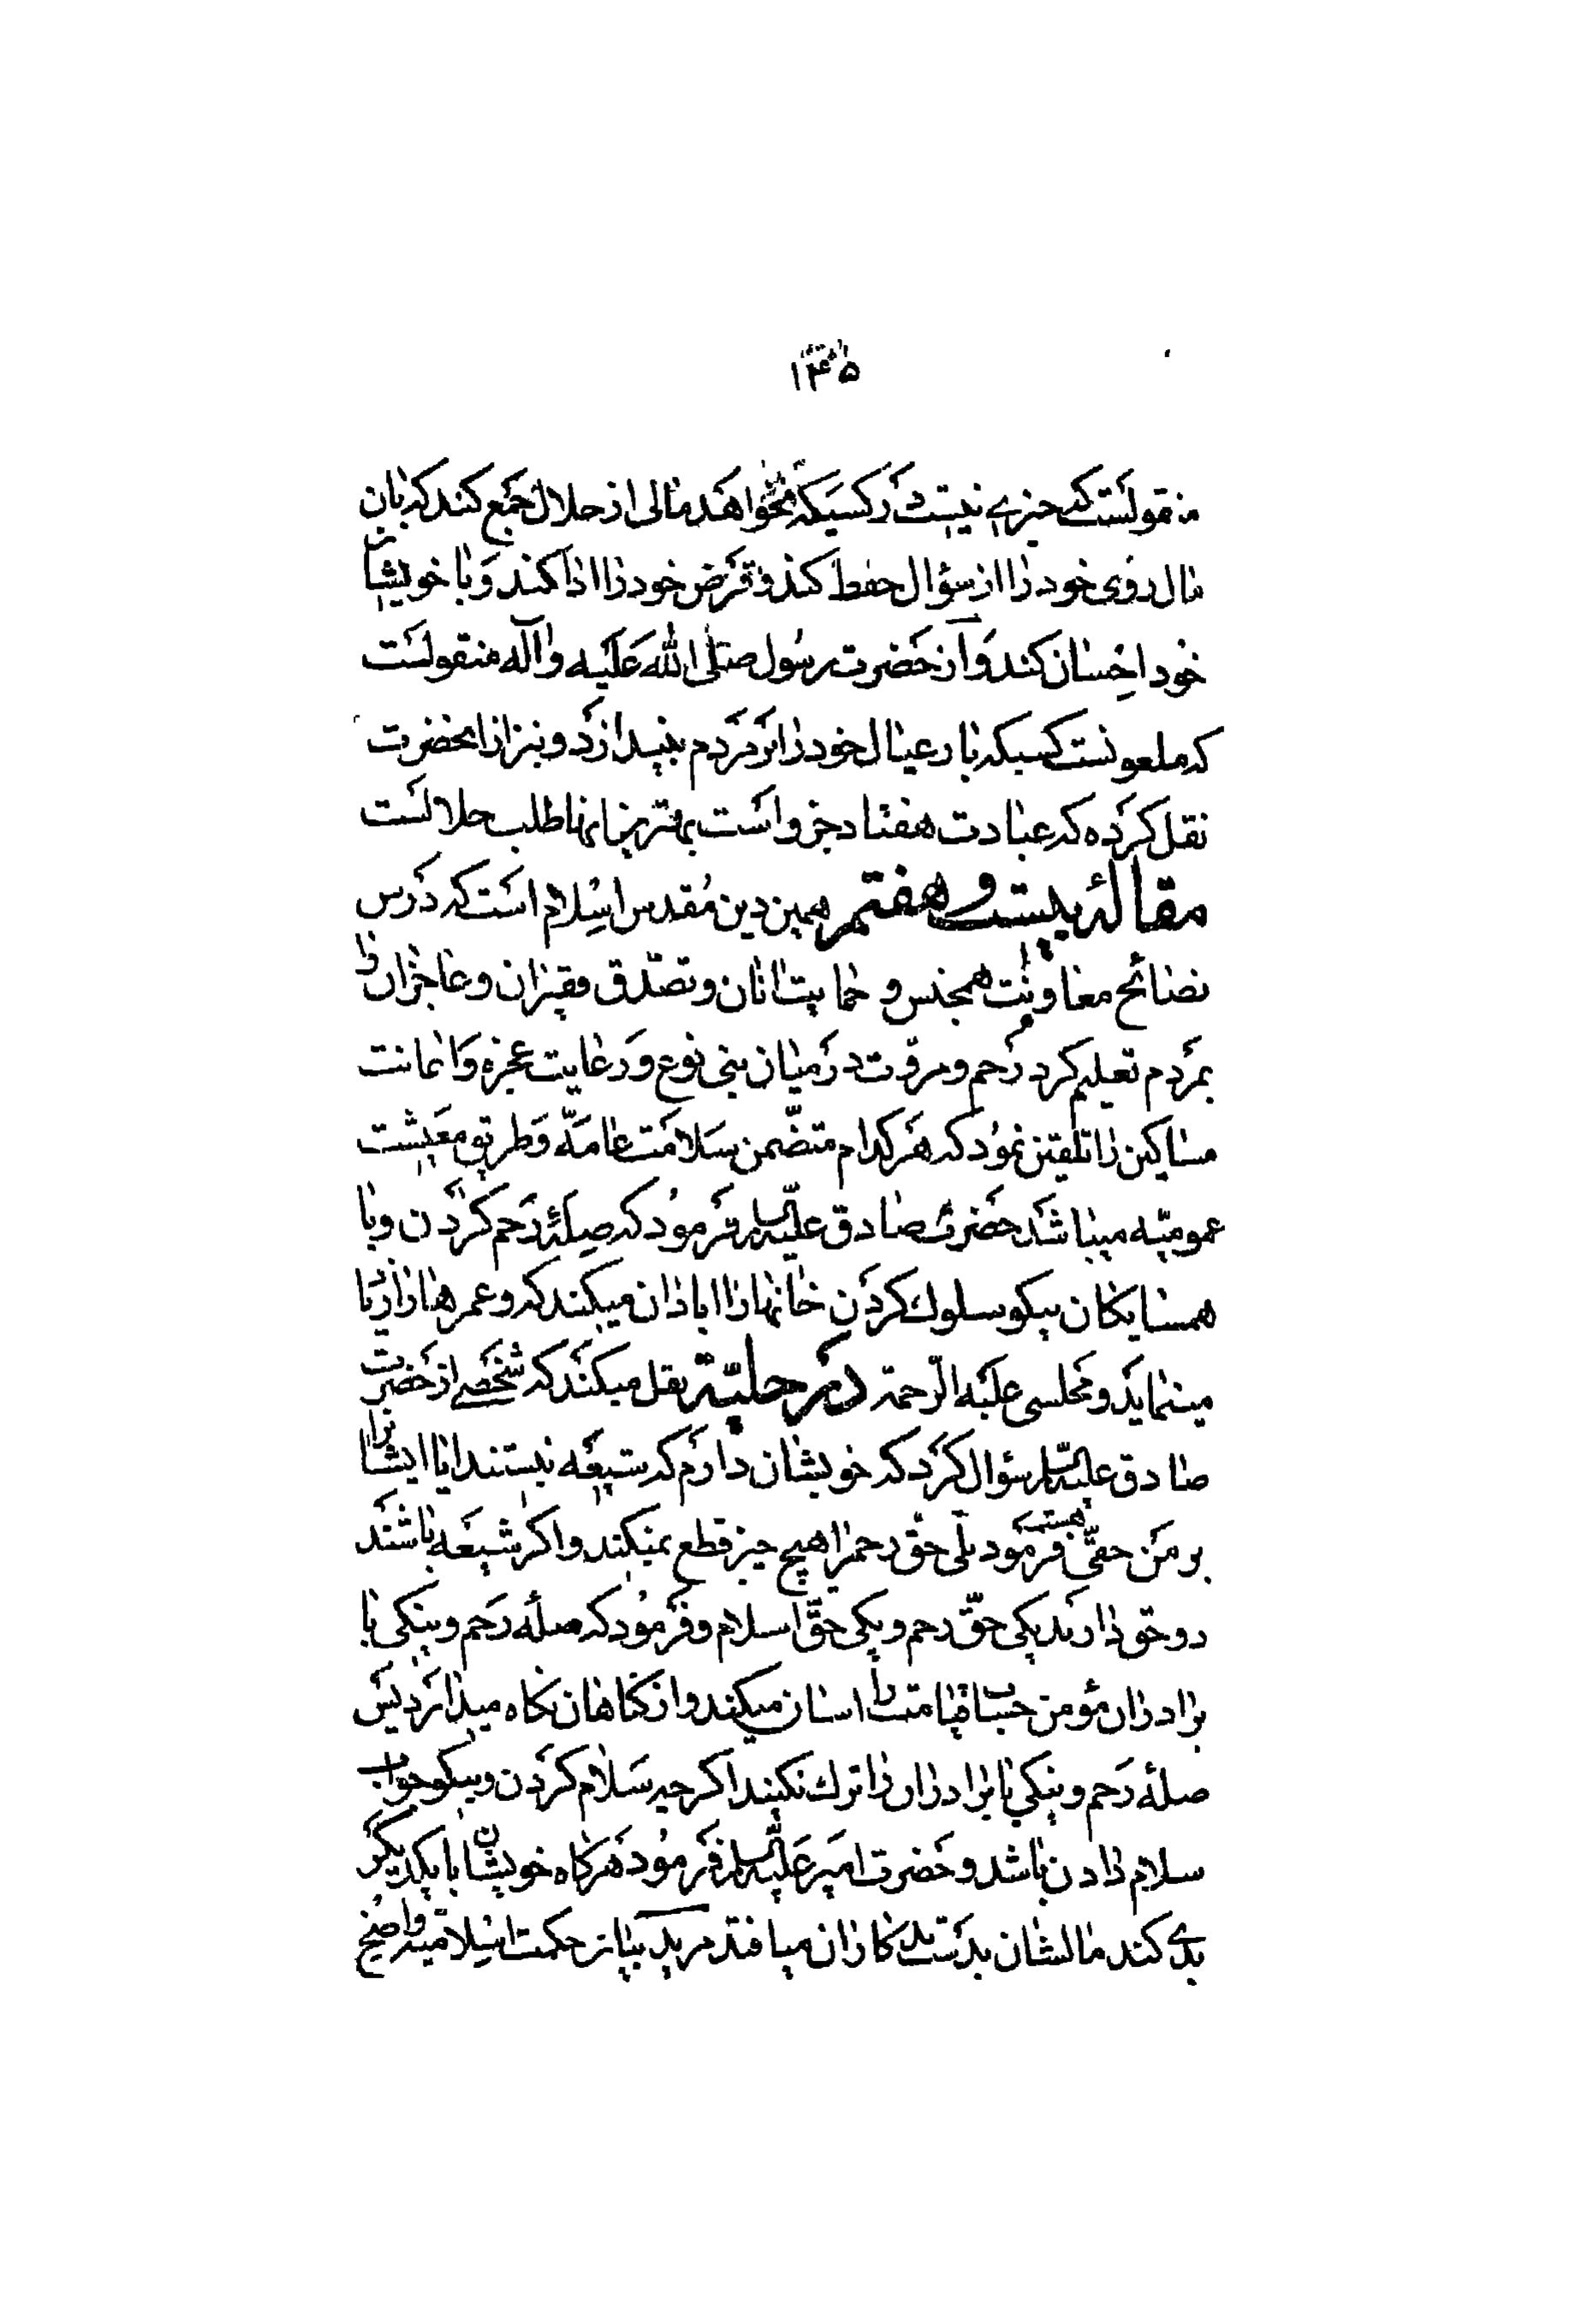 ۱۴۵
منقولست که چیزی نیست در کسیکه نخواهد مالی از حلال جمع کند که بان
مال روی خود را از سؤال حفظ کند و قرض خود را ادا کند و با خویشان
خود احسان کند و از حضرت رسول صلی الله علیه و آله منقولست
که ملعونست کسیکه بار عیال خود را بر مردم بیندازد و نیز از انحضرت
نقل کرده که عبادت هفتاد جزو است بهترین انها طلب حلالست
مقاله بیست و هفتم همین دین مقدس اسلام است که درس
نصائح معاونت همجنس و حمایت انان و تصدّق فقیران و عاجزان را
بمردم تعلیم کرد رحم و مروّت در میان بنی نوع و رعایت عجزه و اعانت
مساکین را تلقین نمود که هر کدام متضّمن سلامت عامّه و طریق معیشت
عمومیّه میباشد حضرت صادق علیه السلام فرمود که صلهٔ رحم کردن و با
همسایکان نیکو سلوک کردن خانها را ابادان میکند و عمرها را زیاد
مینماید و مجلسی علیه الرّحمة در حلیّة نقل میکند که شخصی از حضرت
صادق علیه السّلام سؤال کرد که خویشان دارم که شیعه نیستند ایا ایشانرا
بر من حقّی هست فرمود بلی حقّ رحم را هیچ چیز قطع نمیکند و اکر شیعه باشند
دو حق دارند یکی حقّ رحم و یکی حقّ اسلام و فرمود که صلهٔ رحم و نیکی با
برادران مؤمن حساب قیامت را اسان میکند و از کناهان نکاه میدارد پس
صلهٔ رحم و نیکی با برادران را ترک نکنید اکر چه سلام کردن و نیکو جواب
سلام دادن باشد و حضرت امیر علیه السّلام فرمود هر کاه خویشان با یکدیکر
بدی کند مالشان بدست بدکاران میافتد مزید بیان حکمت اسلامیه واضح